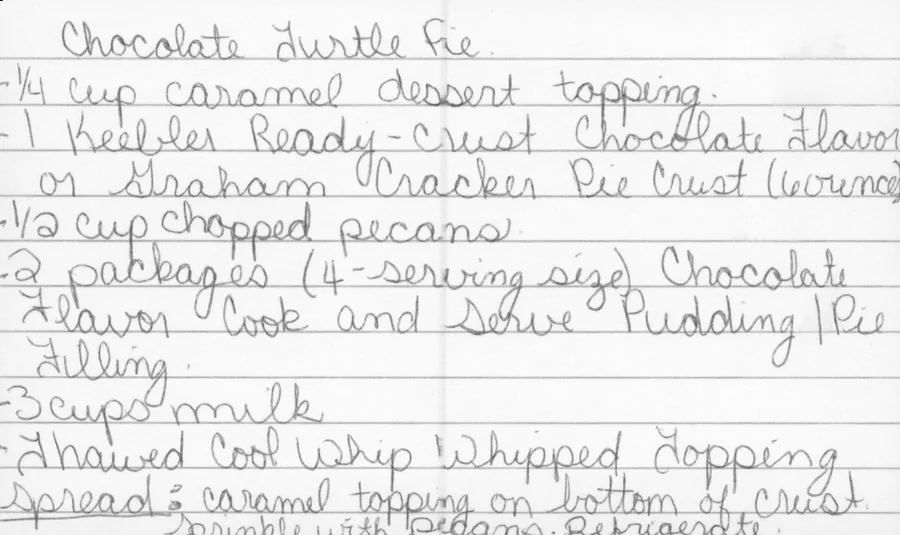 Chocolate Turtle Pie.
-1/4 cup caramel dessert topping.
-1 Keebler Ready-Crust Chocolate Flavor
or Graham Cracker Pie Crust (6ounce)
-1/2 cup chopped pecans.
-2 packages (4-serving size) Chocolate
Flavor Cook and Serve Pudding/Pie
Filling.
-3 cups milk
-Thawed Cool Whip Whipped Topping
Spread: caramel topping on bottom of crust.
Sprinkle with pecans. Refrigerate.